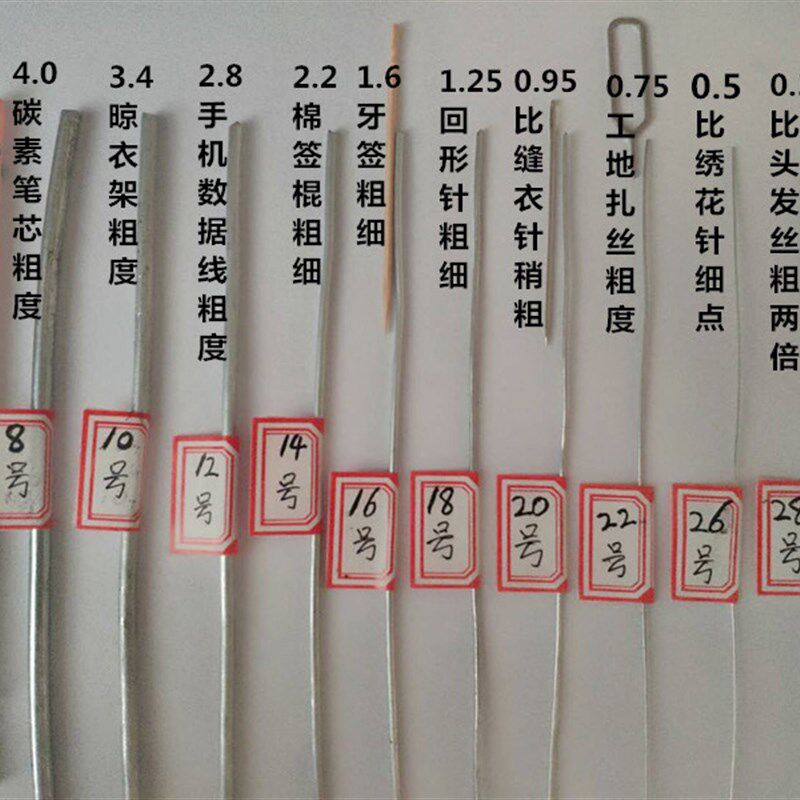 4.0
碳素笔芯粗度
3.4
晾衣架粗度
2.8
手机数据线粗度
2.2
棉签棍粗细
1.6
牙签粗细
1.25
回形针粗细
0.95
比缝衣针稍粗
0.75
工地扎丝粗度
0.5
比绣花针细点
比头发丝粗两倍
8号
10号
12号
14号
16号
18号
20号
22号
26号
28号